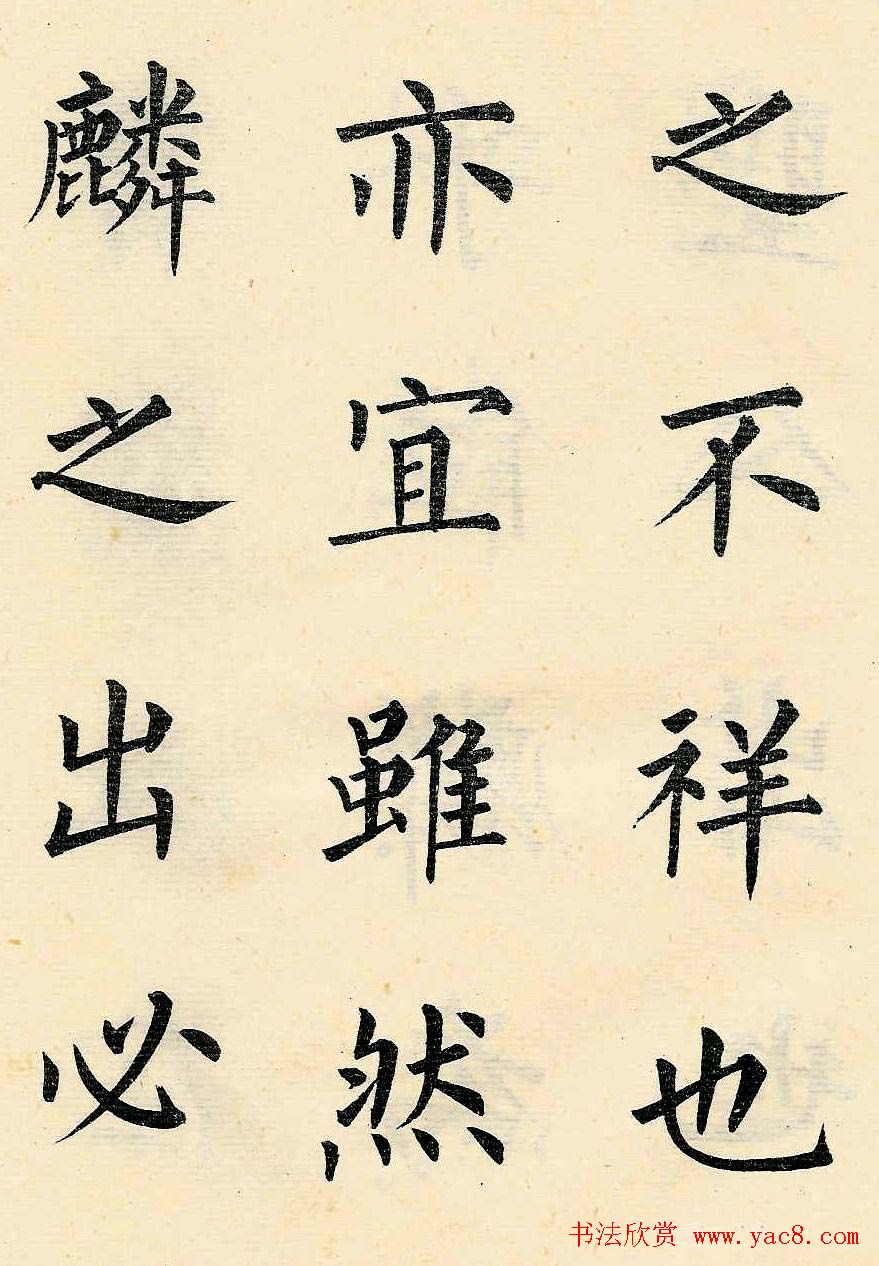 之不祥也
亦宜雖然
麟之出必
书法欣赏 www.yac8.com